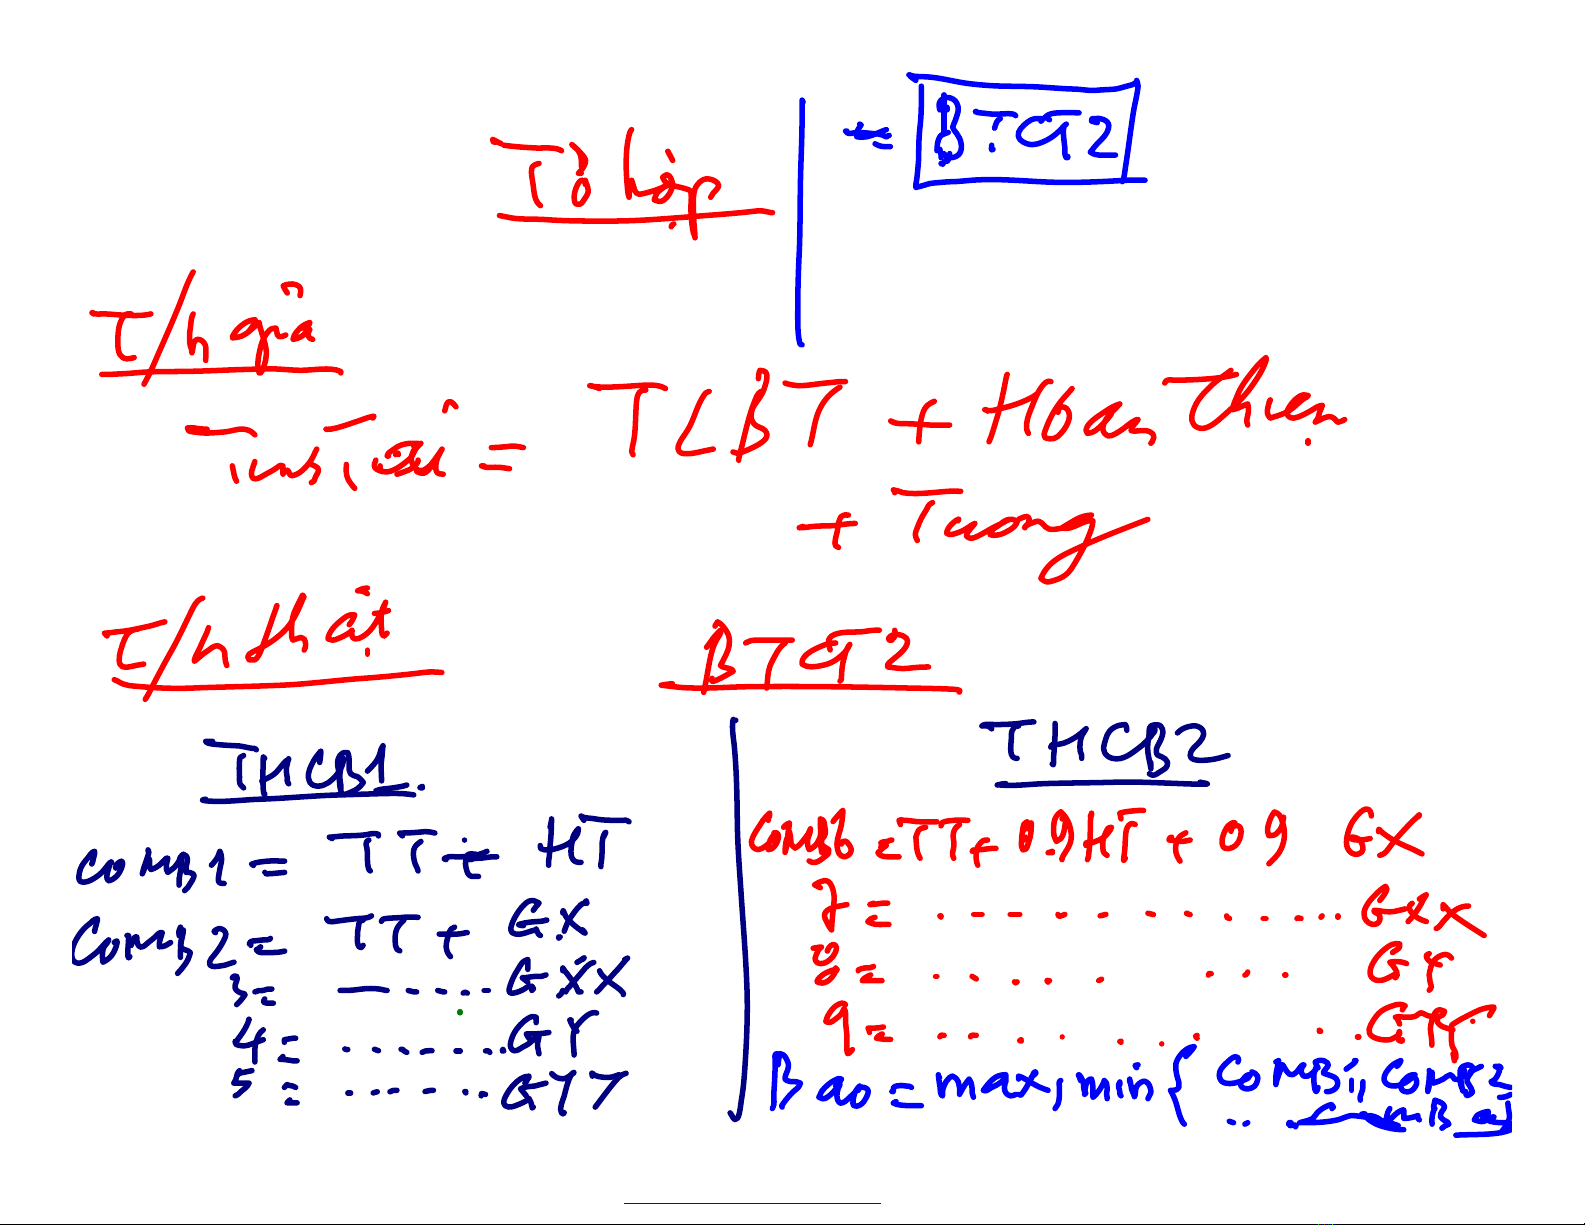 Tổ hợp
= BTGT2
T/h giả
Tĩnh Tải = TLBT + Hoan Thien
+ Tuong
T/h thật
BTGT2
THCB1.
COMB1 = TT + HT
COMB2 = TT + GX
3 = — ..... GXX
4 = ....... GY
5 = ...... GYY
THCB2
COMB6 = TT + 0.9HT + 09 GX
7 = . - - - . . . . . . . . . GXX
8 = . . . . . . . GY
9 = . . . . . . . GYY
Bao = max, min { COMB1, COMB2
.. COMB 9}